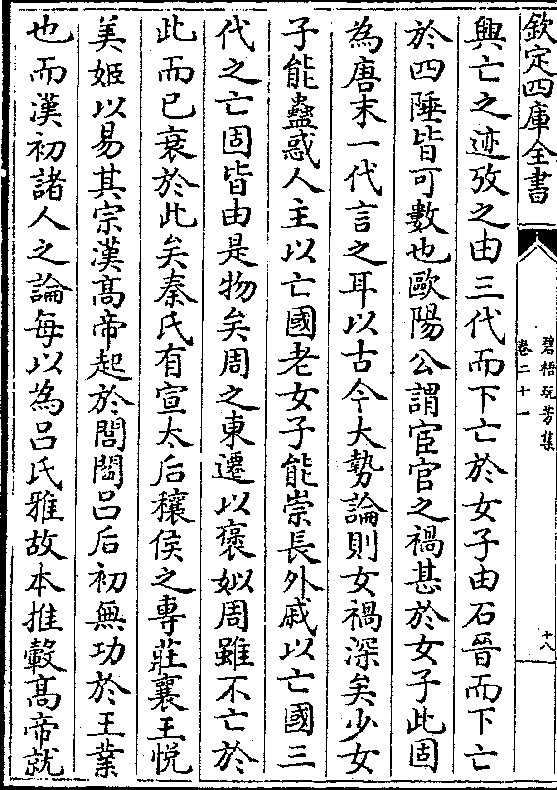 欽定四庫全書
碧梧玩芳集
卷二十一
十八
興亡之迹攷之由三代而下亡於女子由石晉而下亡
於四陲皆可數也歐陽公謂宦官之禍甚於女子此固
為唐末一代言之耳以古今大勢論則女禍深矣少女
子能蠱惑人主以亡國老女子能崇長外戚以亡國三
代之亡固皆由是物矣周之東遷以褒姒周雖不亡於
此而已衰於此矣秦氏有宣太后穰侯之專莊襄王悦
美姬以易其宗漢髙帝起於閭閻吕后初無功於王業
也而漢初諸人之論每以為吕氏雅故本推轂髙帝就